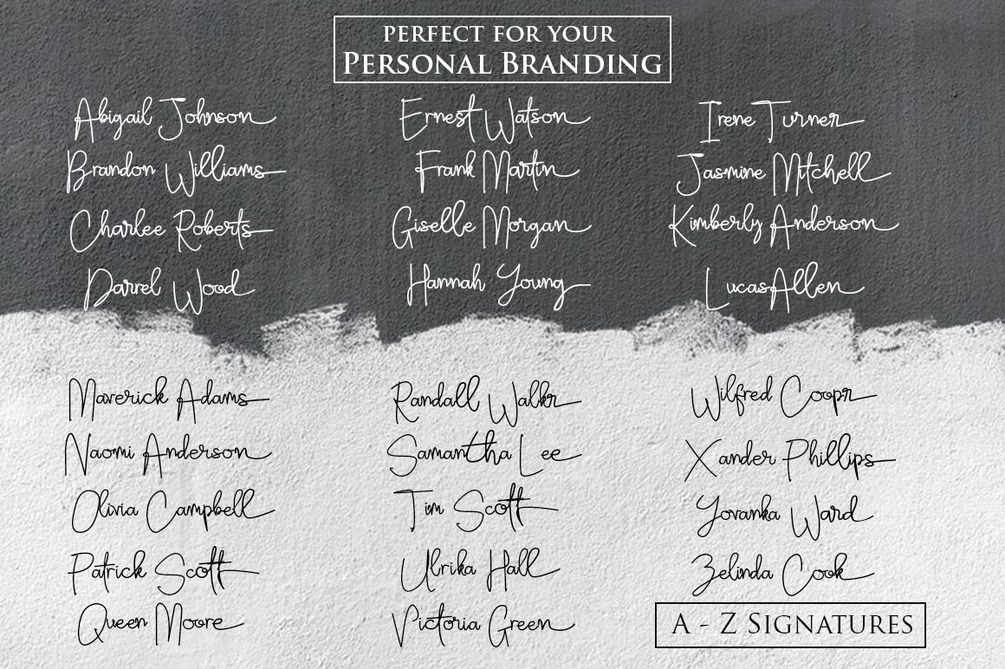 PERFECT FOR YOUR
PERSONAL BRANDING
Abigail Johnson
Brandon Williams
Charlee Roberts
Darrel Wood
Ernest Watson
Frank Martin
Giselle Morgan
Hannah Young
Irene Turner
Jasmine Mitchell
Kimberly Anderson
LucasAllen
Maverick Adams
Naomi Anderson
Olivia Campbell
Patrick Scott
Queen Moore
Randall Walkr
Samantha Lee
Tim Scott
Ulrika Hall
Victoria Green
Wilfred Coopr
Xander Phillips
Yovanka Ward
Zelinda Cook
A - Z SIGNATURES